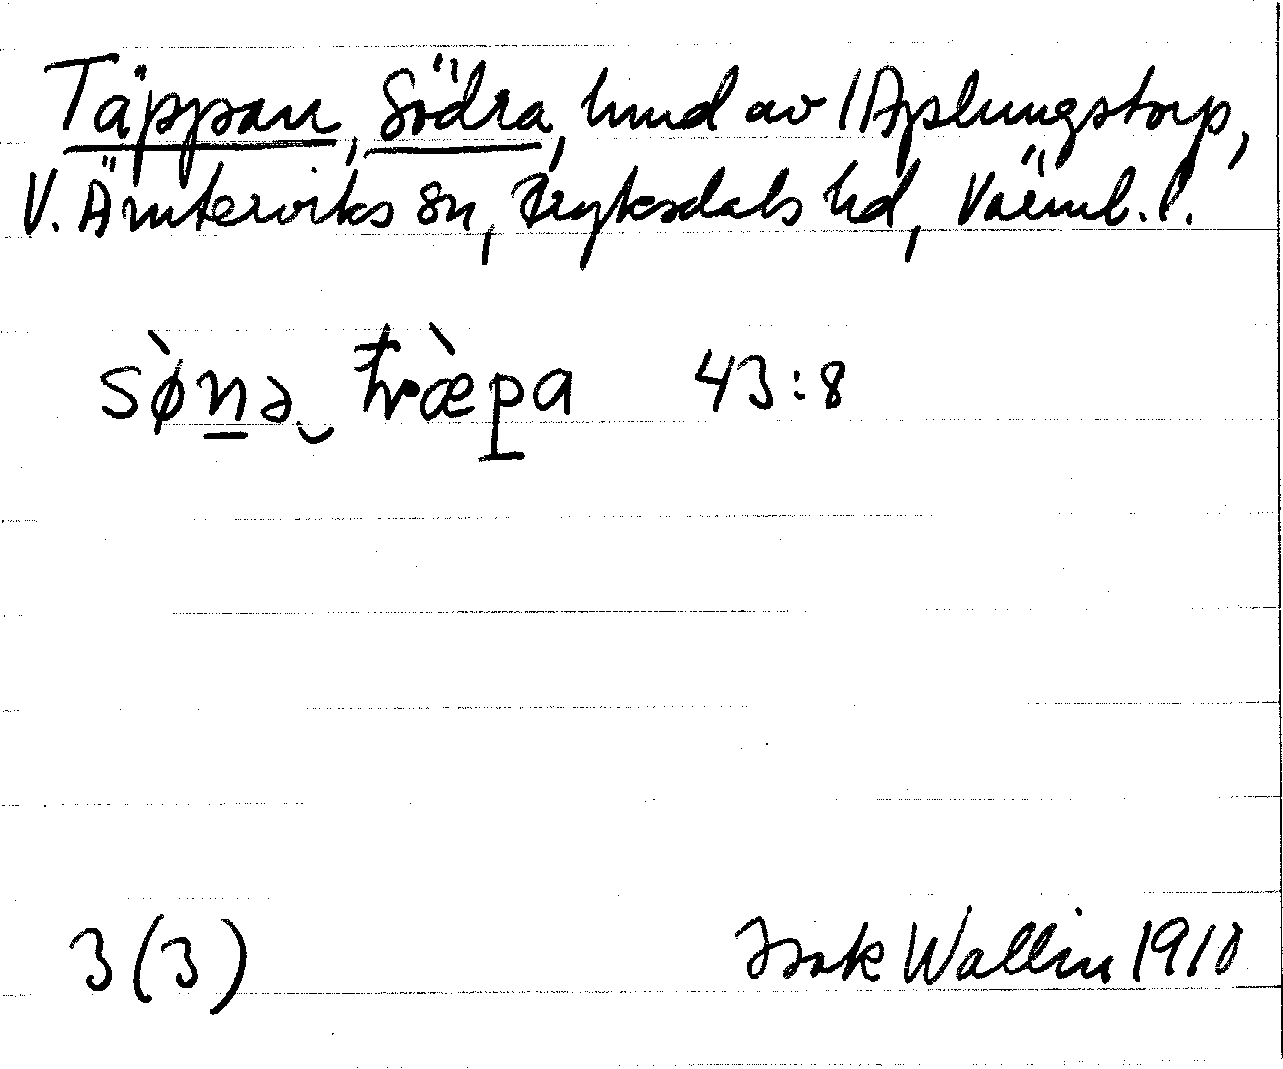 Täppan, Södra, hmd av 1 Aplungstorp,
V. Ämterviks sn, Fryksdals hd, Värml. l.
sø̀n̲ə‿ 43:8
3(3) Isak Wallin 1910